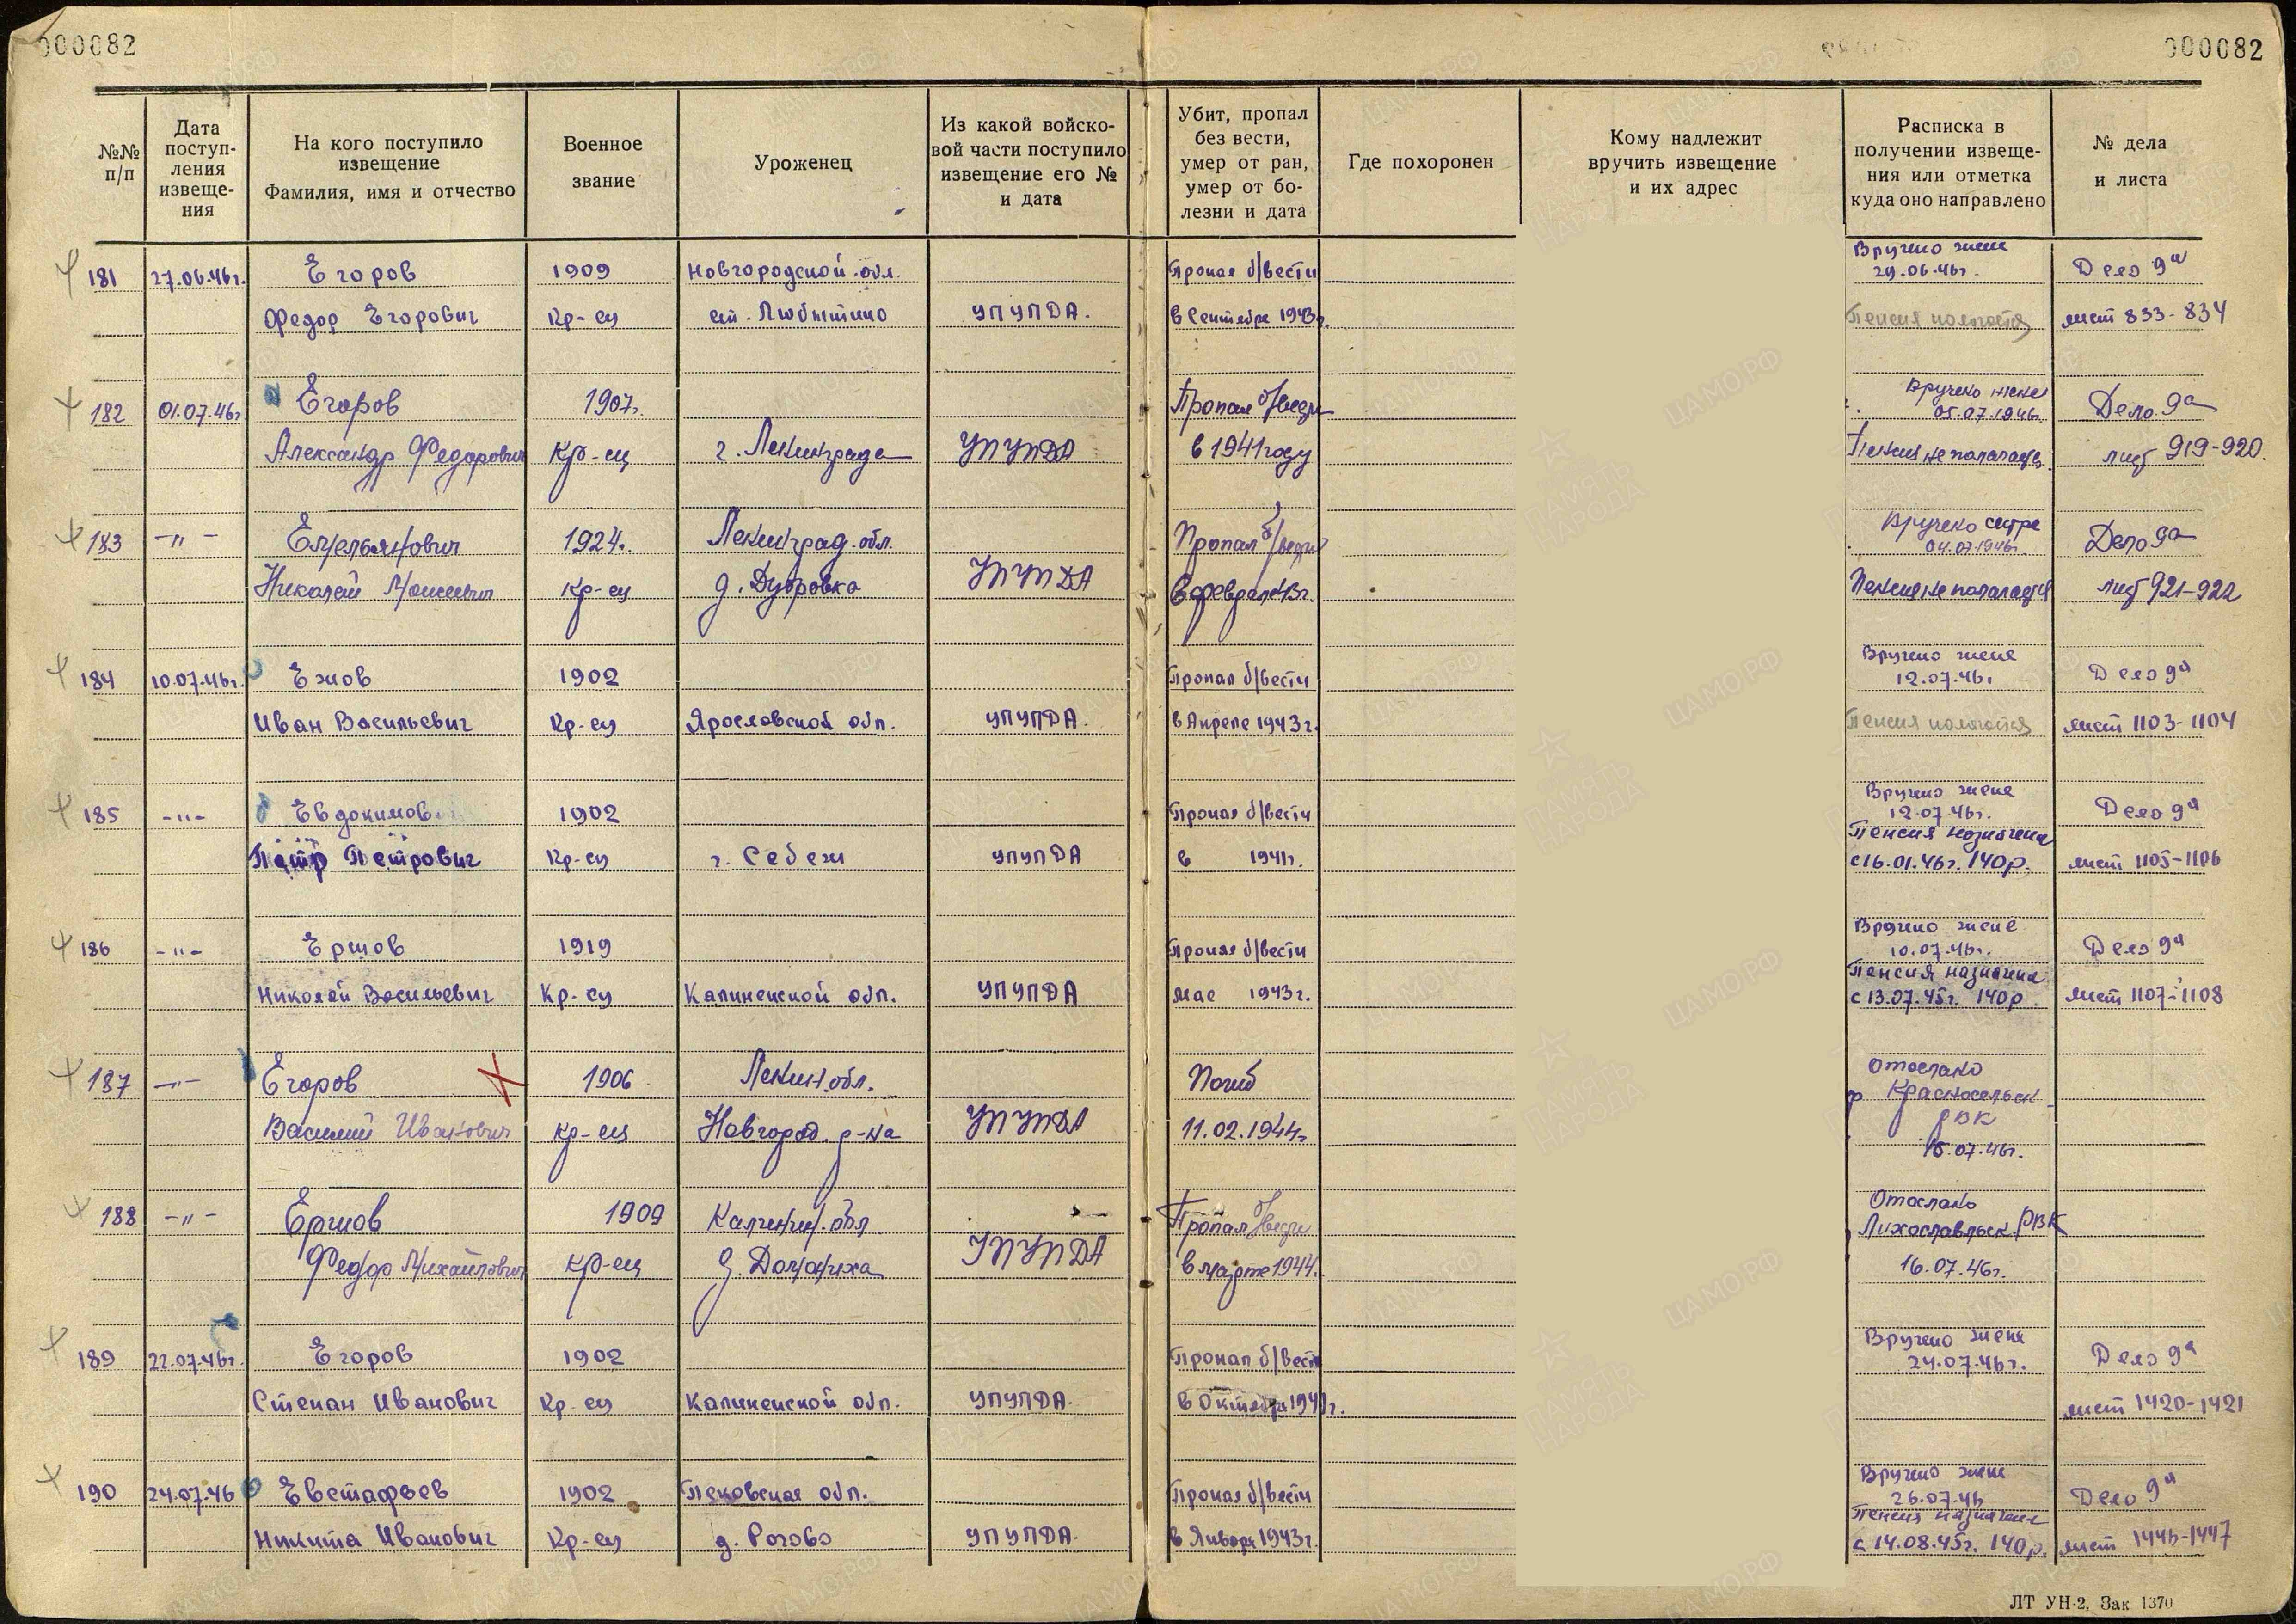 000082
000082
№№ п/п
Дата поступ-ления извеще-ния
На кого поступило извещение Фамилия, имя и отчество
Военное звание
Уроженец
Из какой войско-вой части поступило извещение его № и дата
Убит, пропал без вести, умер от ран, умер от бо-лезни и дата
Где похоронен
Кому надлежит вручить извещение и их адрес
Расписка в получении извеще-ния или отметка куда оно направлено
№ дела и листа
Вручено жене
181 27.06.46г. Егоров 1909 Новгородской обл. Пропал б/вести 29.06.46г. Дело 9а
Федор Егорович Кр-ец ст. Любытино УПУПДА. в Сентябре 1943г. Пенсия полагается лист 833-834
Вручено жене
182 01.07.46г Егоров 1907г. Пропал б/вести 05.07.1946г. Дело 9а
Александр Федорович Кр-ец г. Ленинграда УПУПДА в 1941 году Пенсия не полагается лист 919-920.
Вручено сестре
183 -"- Емельянович 1924г. Ленинград. обл. Пропал б/вести 04.07.1946г. Дело 9а
Николай Кр-ец д. Дубровка УПУПДА в феврале 43г. Пенсия не полагается лист 921-922
Вручено жене
184 10.07.46г. Ежов 1902 Пропал б/вести 12.07.46г. Дело 9а
Иван Васильевич Кр-ец Ярославской обл. УПУПДА. в Апреле 1943г. Пенсия полагается лист 1103-1104
Вручено жене
185 -"- Евдокимов 1902 Пропал б/вести 12.07.46г. Дело 9а
Пенсия назначена
Петр Петрович Кр-ец г. Себеж УПУПДА в 1941г. с 16.01.46г. 140р. лист 1105-1106
Вручено жене
186 -"- Ершов 1919 Пропал б/вести 10.07.46г. Дело 9а
Пенсия назначена
Николай Васильевич Кр-ец Калиненской обл. УПУПДА мае 1943г. с 13.07.45г. 140р. лист 1107-1108
Отослано
187 -"- Егоров 1906 Ленин. обл. Погиб Красносельск
РВК
Василий Иванович кр-ец Новгород. р-на УПУПДА 11.02.1944г. 15.07.46г.
Отослано
188 -"- Ершов 1909 Калинин. обл Пропал б/вести Лихославльск. РВК
Федор Михайлович кр-ец д. УПУПДА в марте 1944. 16.07.46г.
Вручено жене
189 22.07.46г. Егоров 1902 Пропал б/вести 24.07.46г. Дело 9а
Степан Иванович Кр-ец Калиненской обл. УПУПДА. в Октябре 1941г. лист 1420-1421
Вручено жене
190 24.07.46 Евстафьев 1902 Псковская обл. Пропал б/вести 26.07.46 Дело 9а
Пенсия назначена
Никита Иванович Кр-ец д. Рогово УПУПДА. в Январе 1943г. с 14.08.45г. 140р. лист 1446-1447
ЛТ УН-2, Зак 1370